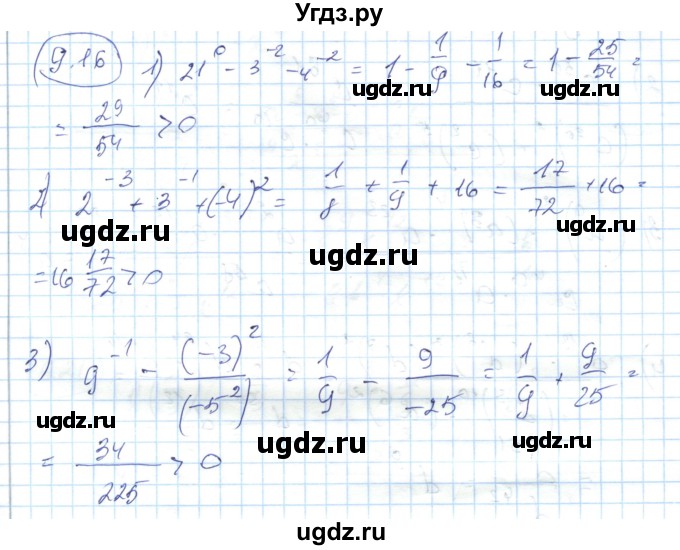 Угдз.ру
9.16 1) 21^0 - 3^-2 - 4^-2 = 1 - 1/9 - 1/16 = 1 - 25/54 =
= 29/54 > 0
2) 2^-3 + 3^-1 + (-4)^2 = 1/8 + 1/9 + 16 = 17/72 + 16 =
= 16 17/72 > 0
3) 9^-1 - (-3)^2/(-5^2) = 1/9 - 9/-25 = 1/9 + 9/25 =
= 34/225 > 0
ugdz.ru
ugdz.ru
ugdz.ru
ugdz.ru
ugdz.ru
ugdz.ru
ugdz.ru
ugdz.ru
ugdz.ru
ugdz.ru
ugdz.ru
ugdz.ru